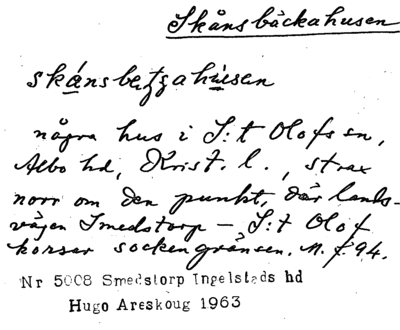 Skånsbäckahusen
skånsbețgahu̇sen
några hus i S:t Olofs sn,
Albo hd, Krist. l., strax
norr om den punkt, där lands-
vägen Smedstorp – S:t Olof
korsar sockengränsen. M.f. 94.
Nr 5008 Smedstorp Ingelstads hd
Hugo Areskoug 1963